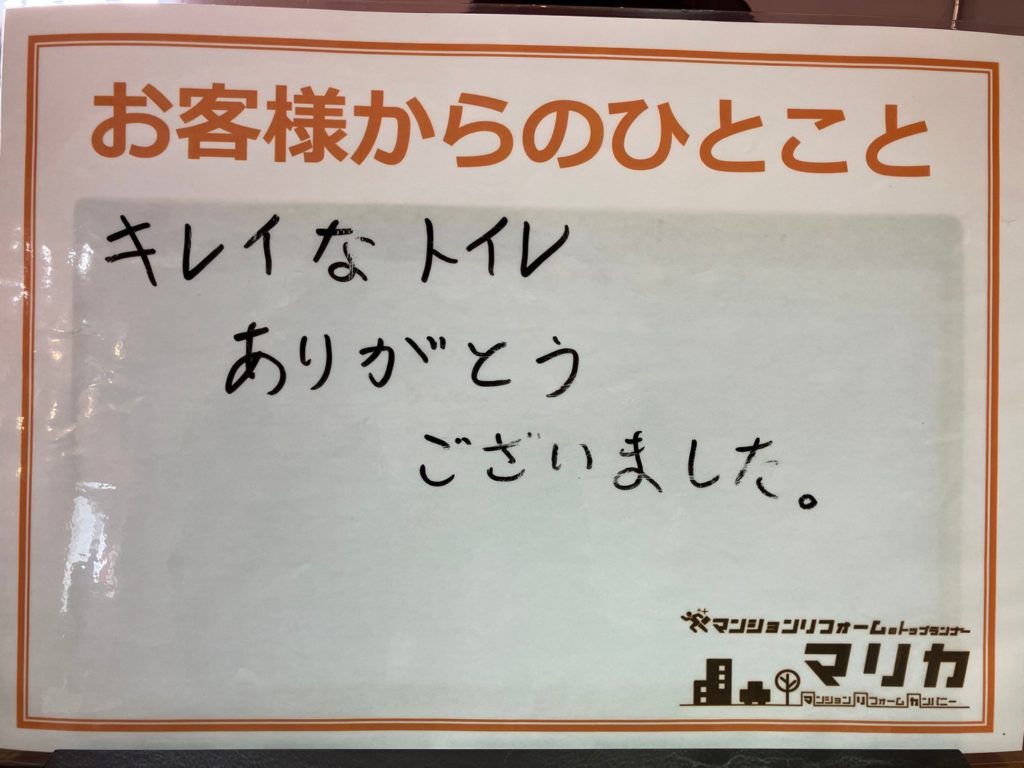 お客様からのひとこと
キレイなトイレ
ありがとう
ございました。
マンションリフォームのトップランナー
マリカ
マンションリフォームカンパニー